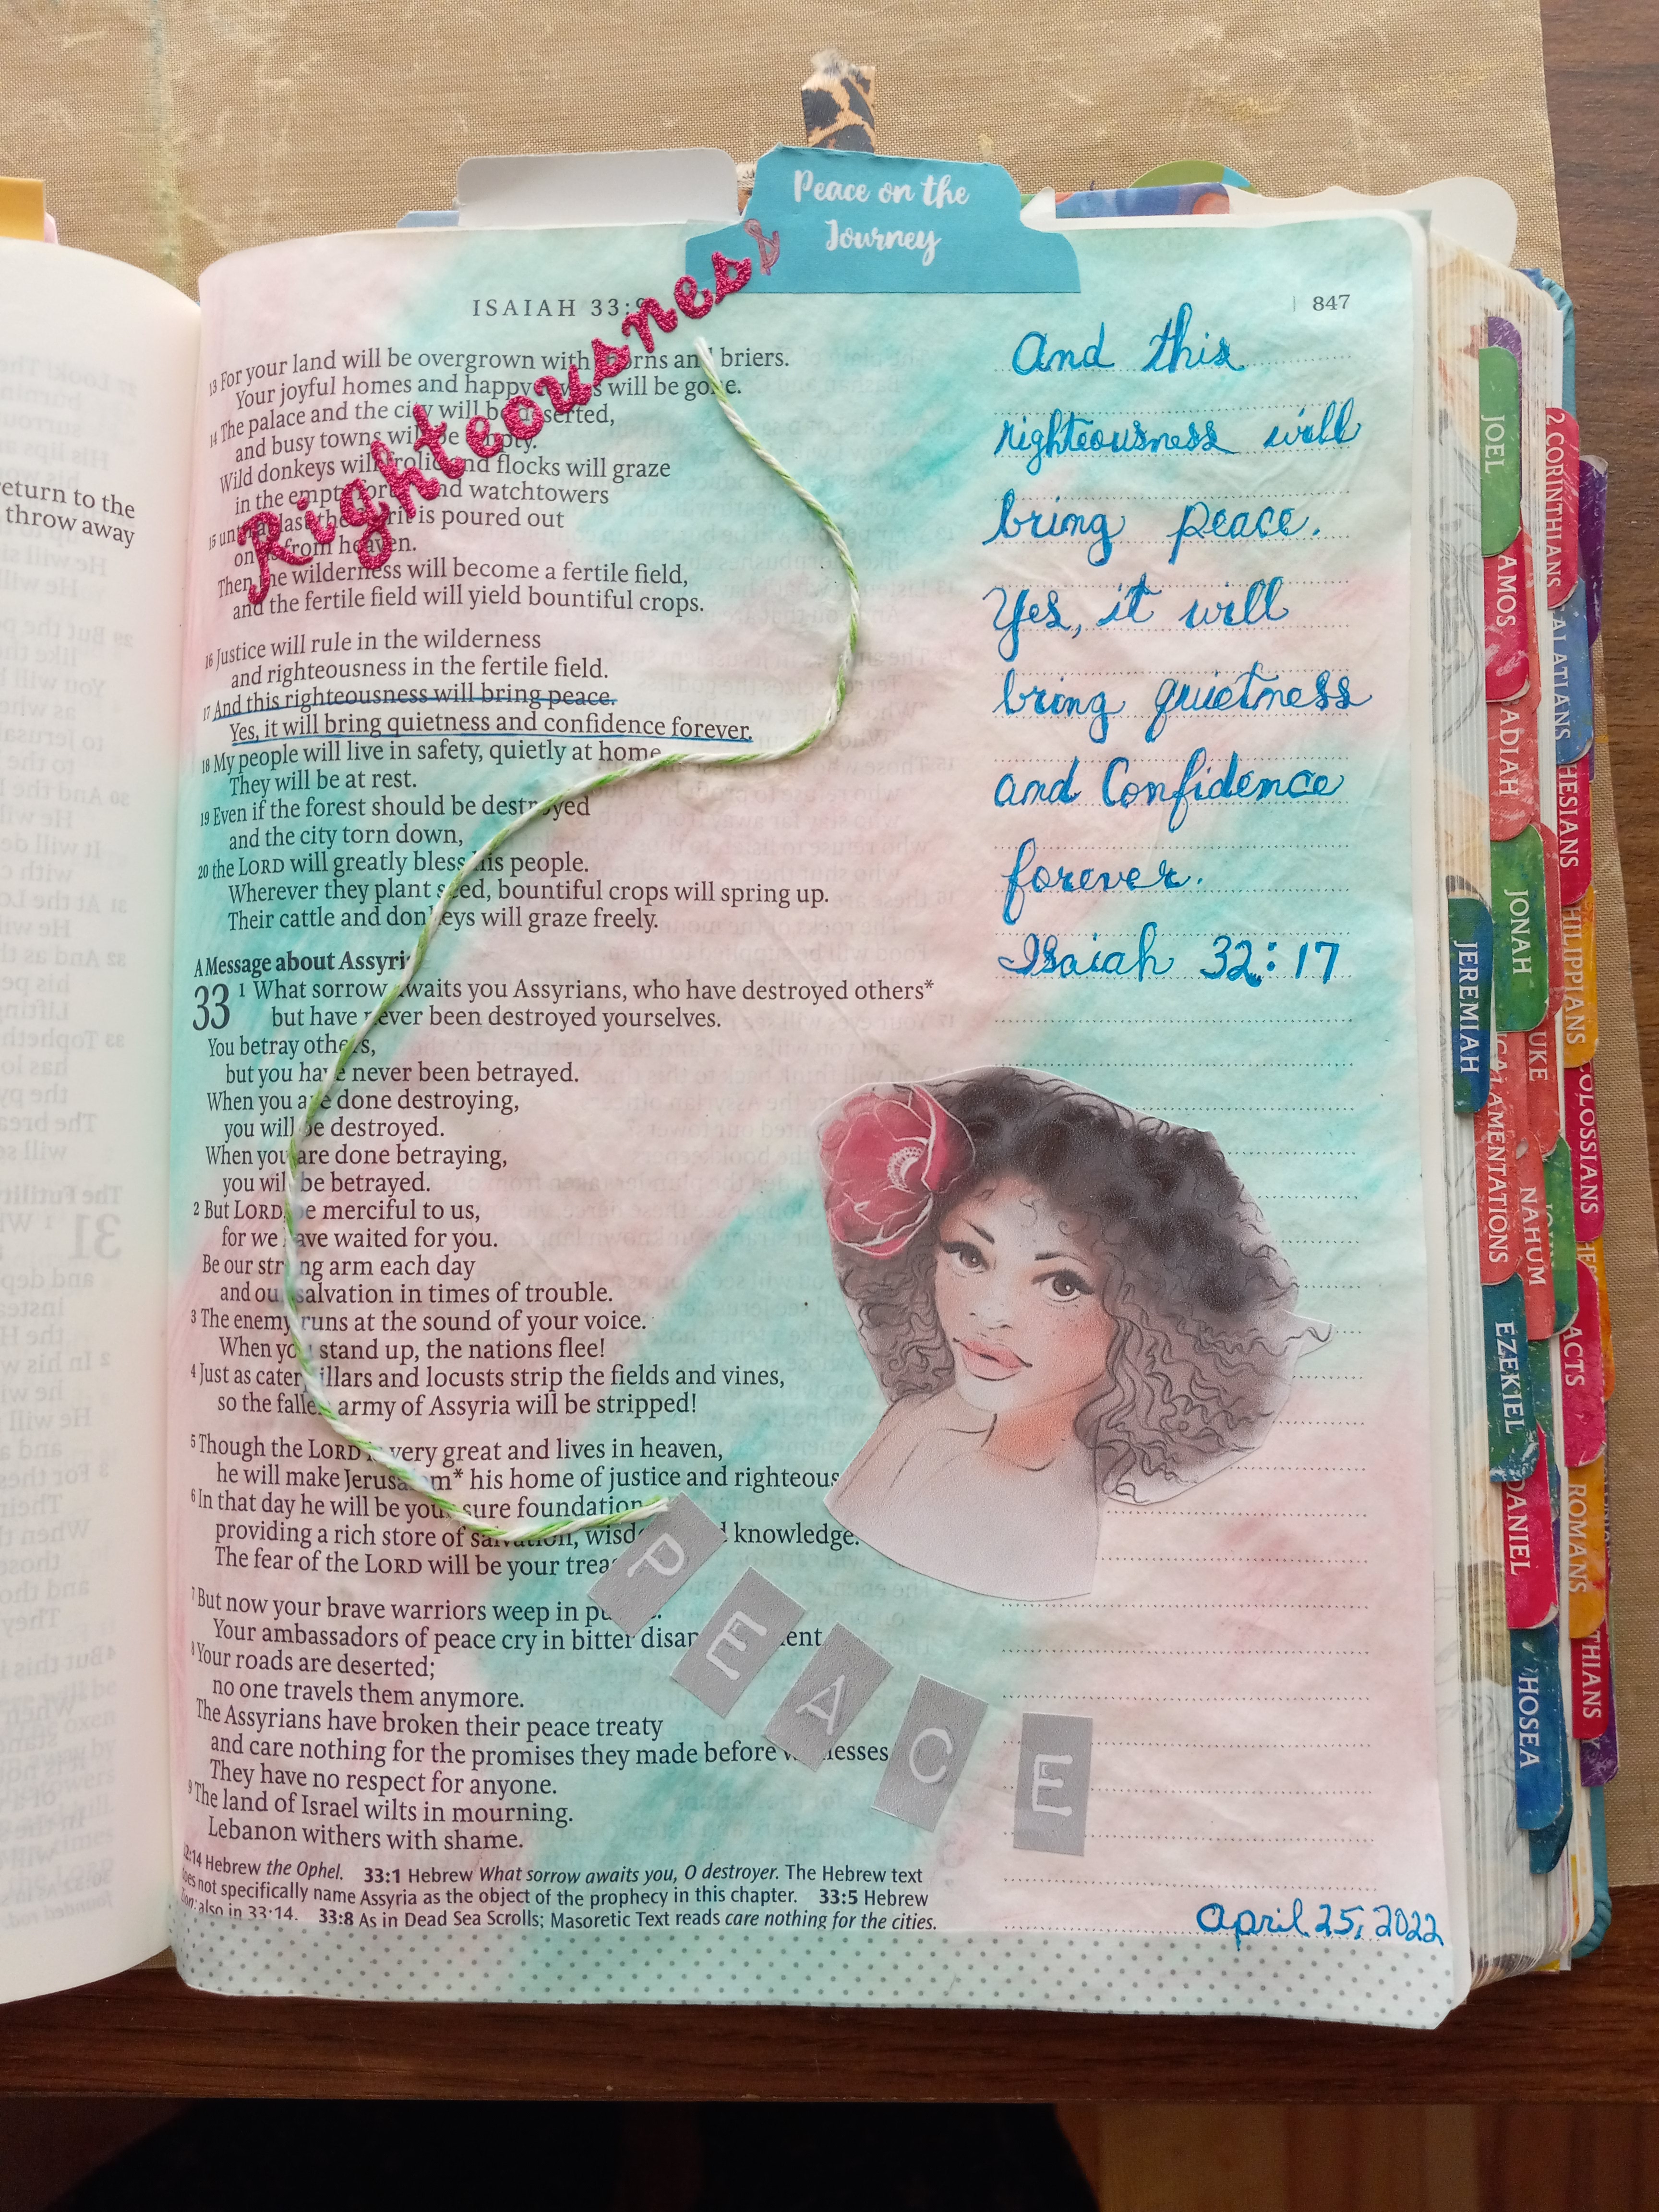 Peace on the
Journey
Righteousness
ISAIAH 33:9
847
13 For your land will be overgrown with thorns and briers.
Your joyful homes and happy towns will be gone.
14 The palace and the city will be deserted,
and busy towns will be empty.
Wild donkeys will frolic and flocks will graze
in the empty forts and watchtowers
15 until at last the Spirit is poured out
on us from heaven.
Then the wilderness will become a fertile field,
and the fertile field will yield bountiful crops.
16 Justice will rule in the wilderness
and righteousness in the fertile field.
17 And this righteousness will bring peace.
Yes, it will bring quietness and confidence forever.
18 My people will live in safety, quietly at home.
They will be at rest.
19 Even if the forest should be destroyed
and the city torn down,
20 the LORD will greatly bless his people.
Wherever they plant seed, bountiful crops will spring up.
Their cattle and donkeys will graze freely.
A Message about Assyria
33 1 What sorrow awaits you Assyrians, who have destroyed others*
but have never been destroyed yourselves.
You betray others,
but you have never been betrayed.
When you are done destroying,
you will be destroyed.
When you are done betraying,
you will be betrayed.
2 But LORD, be merciful to us,
for we have waited for you.
Be our strong arm each day
and our salvation in times of trouble.
3 The enemy runs at the sound of your voice.
When you stand up, the nations flee!
4 Just as caterpillars and locusts strip the fields and vines,
so the fallen army of Assyria will be stripped!
5 Though the LORD is very great and lives in heaven,
he will make Jerusalem* his home of justice and righteous
6 In that day he will be your sure foundation,
providing a rich store of salvation, wisdom, and knowledge.
The fear of the LORD will be your treasure.
7 But now your brave warriors weep in public.
Your ambassadors of peace cry in bitter disappointment.
8 Your roads are deserted;
no one travels them anymore.
The Assyrians have broken their peace treaty
and care nothing for the promises they made before witnesses.
They have no respect for anyone.
9 The land of Israel wilts in mourning.
Lebanon withers with shame.
32:14 Hebrew the Ophel. 33:1 Hebrew What sorrow awaits you, O destroyer. The Hebrew text
does not specifically name Assyria as the object of the prophecy in this chapter. 33:5 Hebrew
also in 33:14. 33:8 As in Dead Sea Scrolls; Masoretic Text reads care nothing for the cities.
And this
righteousness will
bring peace.
Yes, it will
bring quietness
and Confidence
forever.
Isaiah 32:17
PEACE
April 25, 2022
return to the
throw away
JOEL
AMOS
ADIAH
JONAH
JEREMIAH
LAMENTATIONS
NAHUM
EZEKIEL
DANIEL
HOSEA
2 CORINTHIANS
ALATIANS
HESIANS
HILIPPIANS
UKE
OLOSSIANS
ACTS
ROMANS
THIANS